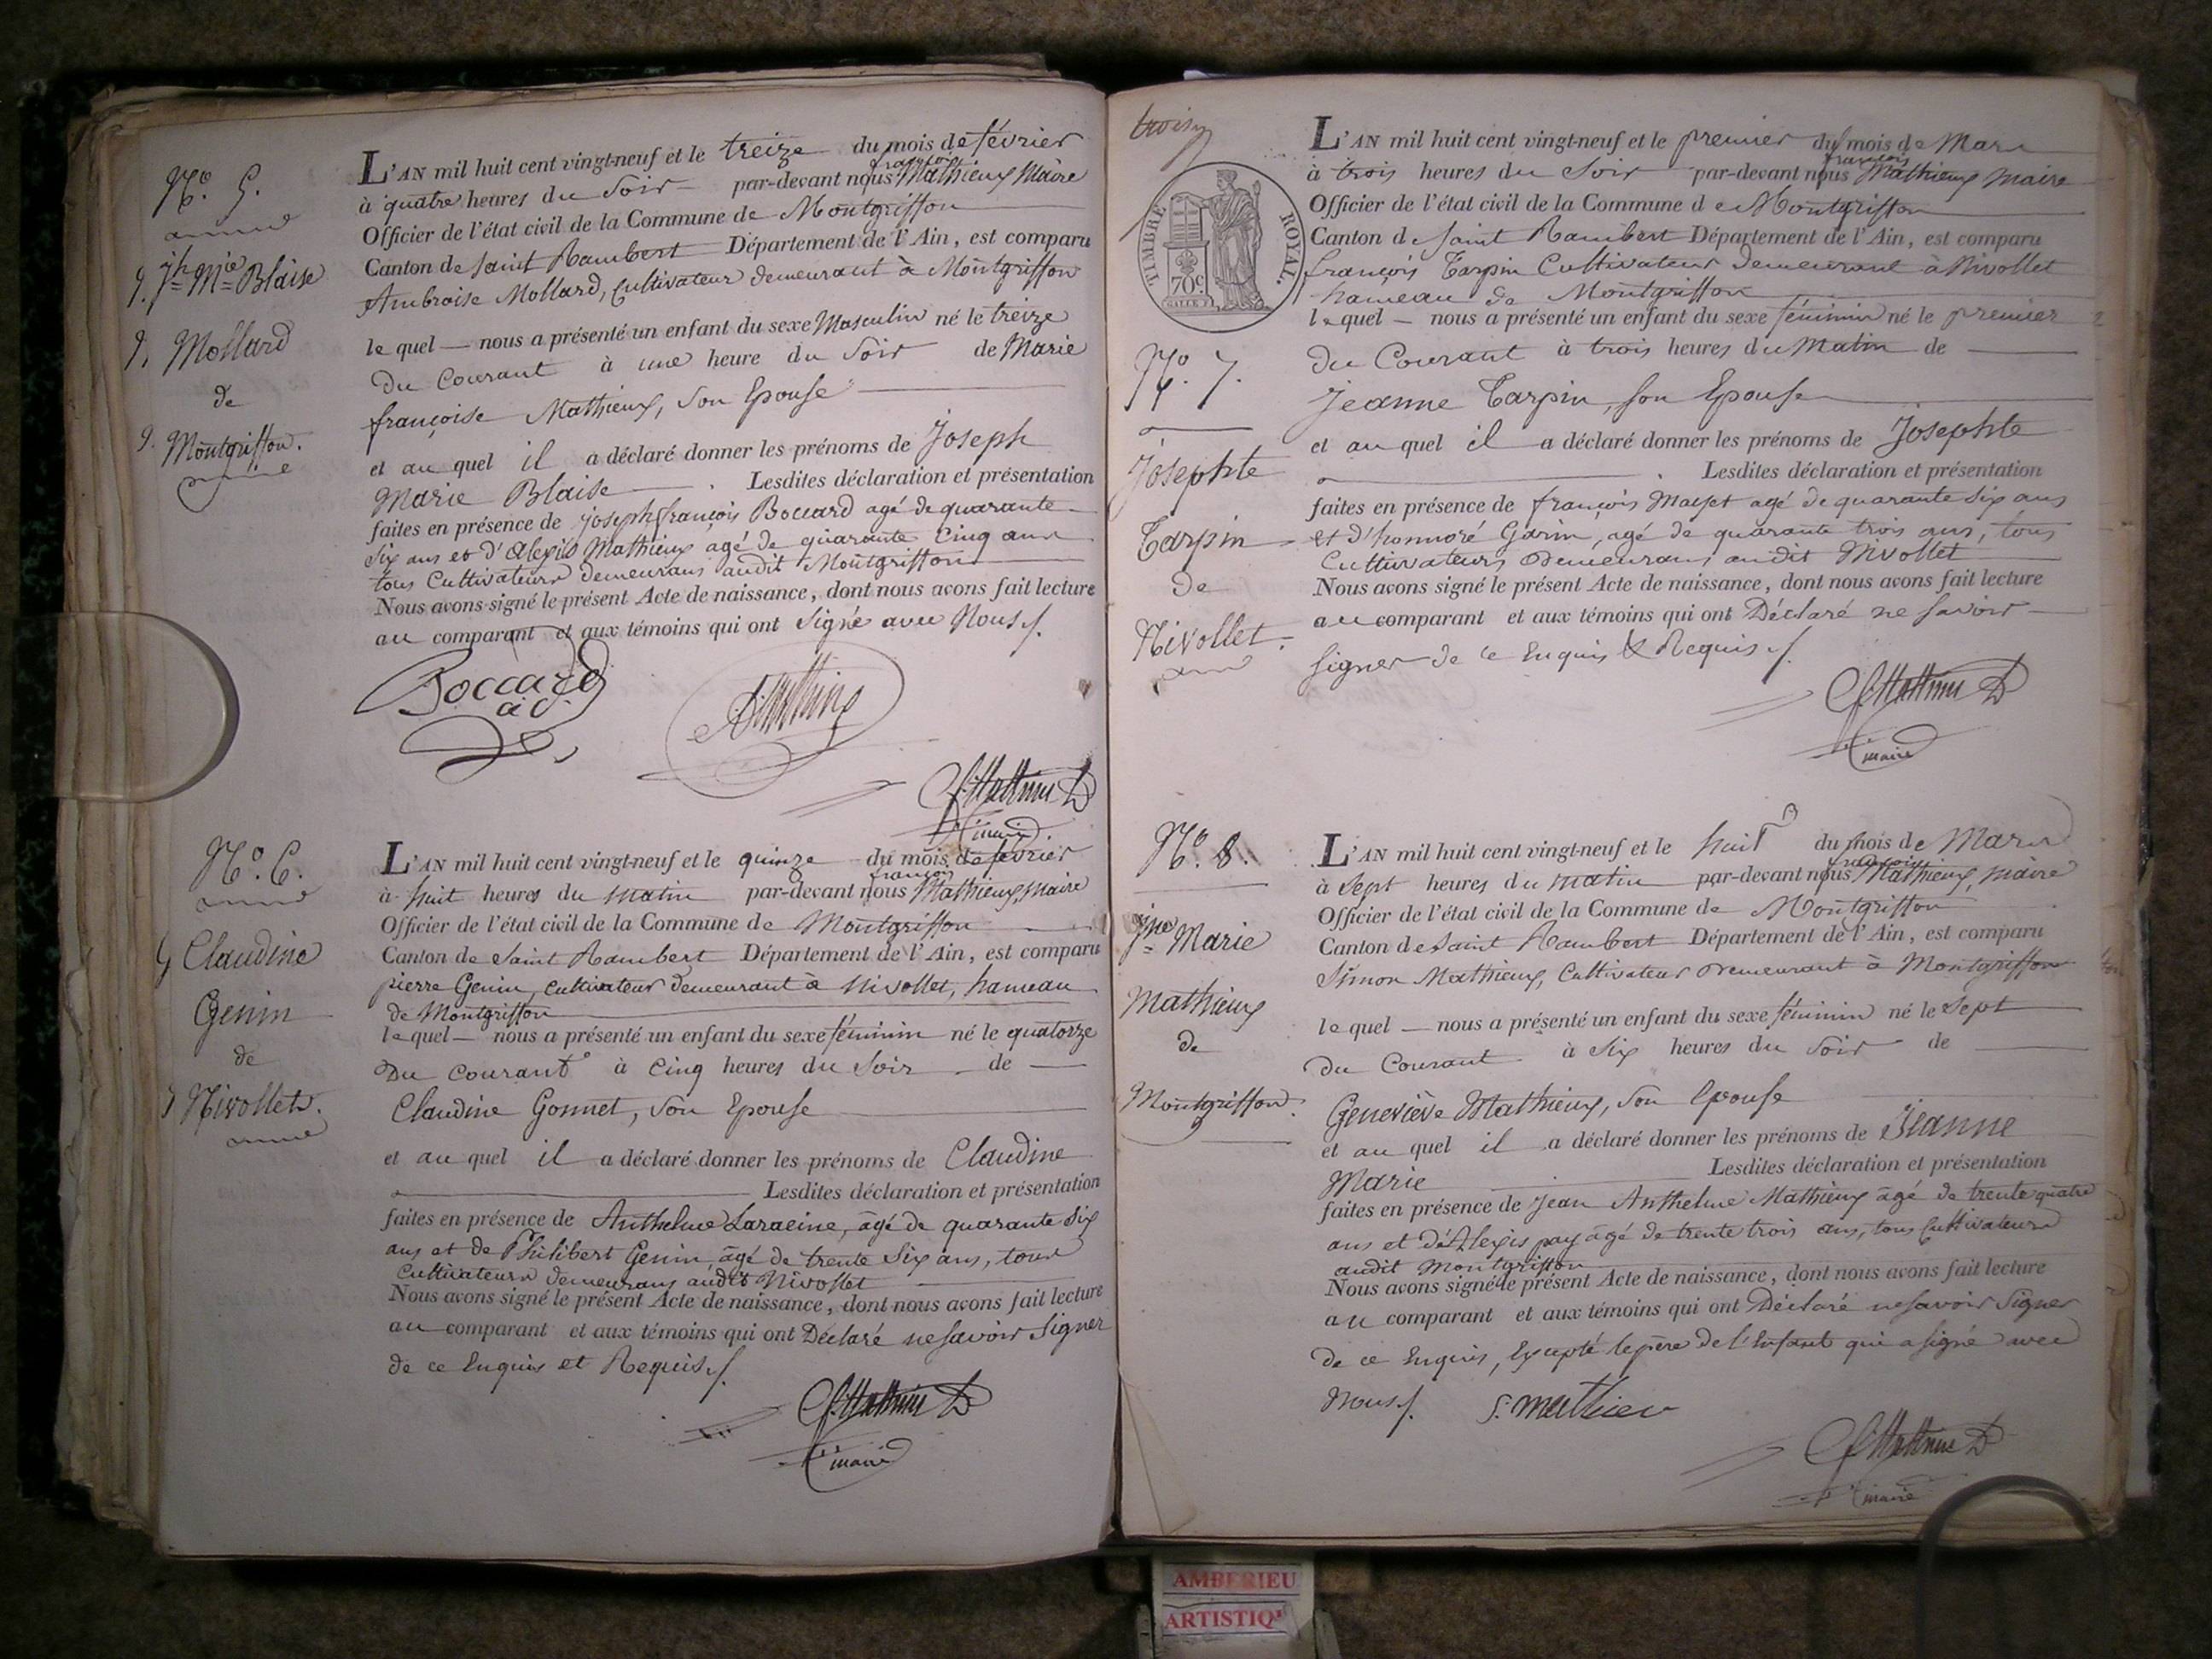 N.º 5.
Jh Mie Blaise
Mollard
de
Montgriffon.
L'AN mil huit cent vingt-neuf et le treize du mois de février
à quatre heures du soir par-devant nous françois Mathieux Maire
Officier de l'état civil de la Commune de Montgriffon
Canton de Saint Rambert Département de l'Ain, est comparu
Ambroise Mollard, Cultivateur demeurant à Montgriffon
le quel — nous a présenté un enfant du sexe Masculin né le treize
du Courant à une heure du Soir de Marie
françoise Mathieux, Son Epouse
et au quel il a déclaré donner les prénoms de Joseph
Marie Blaise. Lesdites déclaration et présentation
faites en présence de joseph françois Boccard agé de quarante
Six ans et d'Alexis Mathieux agé de quarante Cinq ans
tous Cultivateurs demeurans audit Montgriffon
Nous avons signé le présent Acte de naissance, dont nous avons fait lecture
au comparant et aux témoins qui ont Signé avec Nous.
Boccard
ad.
A. Mathieux
f. Mathieux
maire
N.º 6.
Claudine
Genin
de
Nivollet.
L'AN mil huit cent vingt-neuf et le quinze du mois de février
à huit heures du matin par-devant nous françois Mathieux, maire
Officier de l'état civil de la Commune de Montgriffon
Canton de Saint Rambert Département de l'Ain, est comparu
pierre Genin, cultivateur demeurant à Nivollet, hameau
de Montgriffon
le quel — nous a présenté un enfant du sexe féminin né le quatorze
Du Courant à Cinq heures du Soir de —
Claudine Gonnet, Son Epouse
et au quel il a déclaré donner les prénoms de Claudine
Lesdites déclaration et présentation
faites en présence de Anthelme Laracine, âgé de quarante Six
ans et de Philibert Genin, âgé de trente Six ans, tous
Cultivateurs demeurans audit Nivollet
Nous avons signé le présent Acte de naissance, dont nous avons fait lecture
au comparant et aux témoins qui ont Déclaré ne Savoir Signer
de ce Enquis et Requis.
f. Mathieux
maire
TIMBRE ROYAL.
70c.
N.º 7.
Josephte
Tarpin
de
Nivollet.
L'AN mil huit cent vingt-neuf et le premier du mois de Mars
à trois heures du Soir par-devant nous françois Mathieux maire
Officier de l'état civil de la Commune de Montgriffon
Canton de Saint Rambert Département de l'Ain, est comparu
françois Tarpin Cultivateur demeurant à Nivollet
hameau de Montgriffon
le quel — nous a présenté un enfant du sexe féminin né le premier
du Courant à trois heures du Matin de —
Jeanne Tarpin, son Epouse
et au quel il a déclaré donner les prénoms de Josephte
. Lesdites déclaration et présentation
faites en présence de françois agé de quarante Six ans
et d'honnoré Garin, agé de quarante trois ans, tous
Cultivateurs demeurans audit Nivollet
Nous avons signé le présent Acte de naissance, dont nous avons fait lecture
au comparant et aux témoins qui ont Déclaré ne Savoir
signer de ce Enquis & Requis.
f. Mathieux
maire
N.º 8.
Jne Marie
Mathieux
de
Montgriffon.
L'AN mil huit cent vingt-neuf et le huit du mois de Mars
à Sept heures du matin par-devant nous françois Mathieux, maire
Officier de l'état civil de la Commune de Montgriffon
Canton de Saint Rambert Département de l'Ain, est comparu
Simon Mathieux, Cultivateur Demeurant à Montgriffon
le quel — nous a présenté un enfant du sexe féminin né le Sept
du Courant à Six heures du Soir de —
Geneviève Mathieux, Son Epouse
et au quel il a déclaré donner les prénoms de Jeanne
Marie Lesdites déclaration et présentation
faites en présence de Jean Anthelme Mathieux âgé de trente quatre
ans et d'Alexis pay âgé de trente trois ans, tous Cultivateurs
audit Montgriffon
Nous avons signé le présent Acte de naissance, dont nous avons fait lecture
au comparant et aux témoins qui ont Déclaré ne Savoir Signer
de ce Enquis, Excepté le père de l'Enfant qui a signé avec
Nous. S. mathieu
f. Mathieux
maire
AMBERIEU
ARTISTIQ